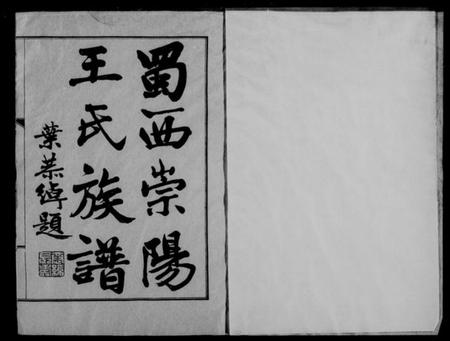 蜀西崇陽
王氏族譜
葉恭綽題